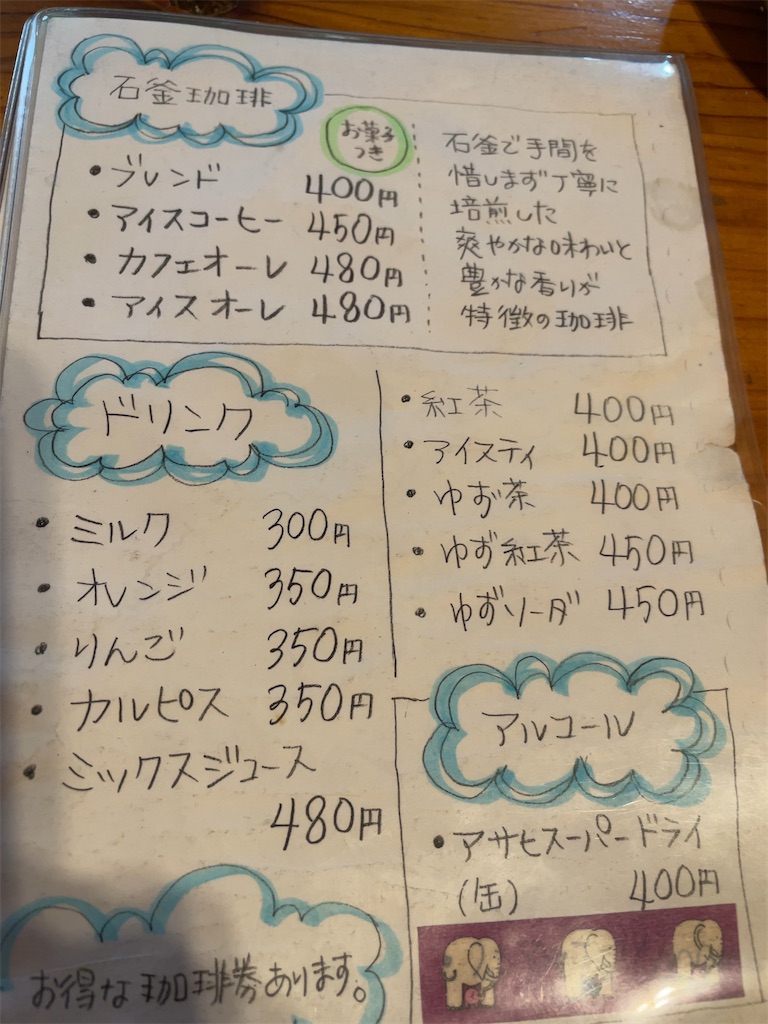 石釜珈琲
お菓子
つき
・ブレンド 400円
・アイスコーヒー 450円
・カフェオーレ 480円
・アイスオーレ 480円
石釜で手間を
惜しまず丁寧に
培煎した
爽やかな味わいと
豊かな香りが
特徴の珈琲
ドリンク
・ミルク 300円
・オレンジ 350円
・りんご 350円
・カルピス 350円
・ミックスジュース
480円
・紅茶 400円
・アイスティ 400円
・ゆず茶 400円
・ゆず紅茶 450円
・ゆずソーダ 450円
アルコール
・アサヒスーパードライ
(缶) 400円
お得な珈琲券あります。